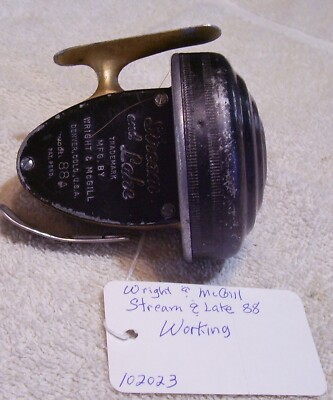 Stream
and Lake
TRADEMARK
MFG. BY
WRIGHT & McGILL
DENVER, COLO., U.S.A.
MODEL 88A
PAT. PEND.
Wright & McGill
Stream & Late 88
Working
102023